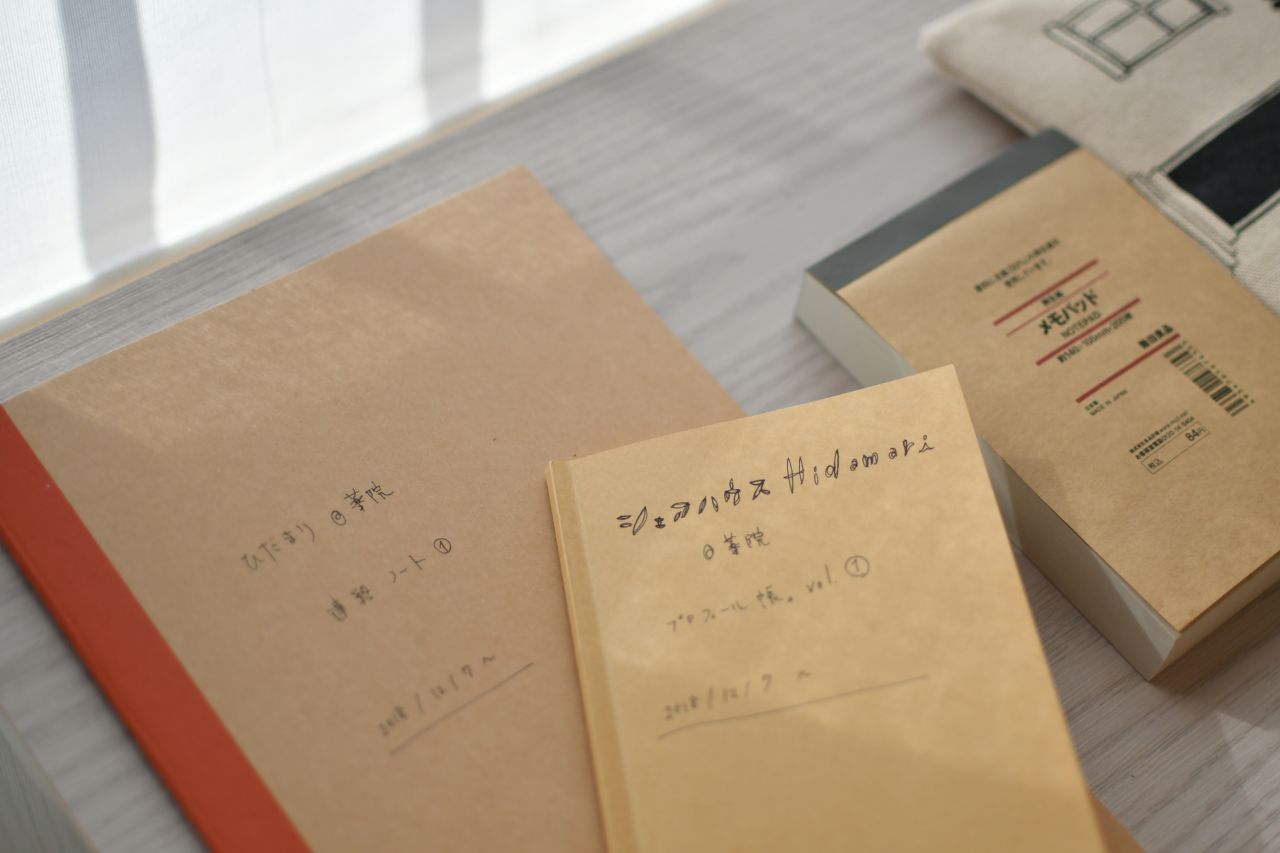 ひだまり @華院
連絡 ノート ①
2018/12/7 〜
シェアハウス Hidamari
@華院
プロフィール帳。vol. ①
2018/12/7 〜
再生紙
メモパッド
NOTEPAD
約140×100mm・200枚
無印良品
日本製
MADE IN JAPAN
税込 84円